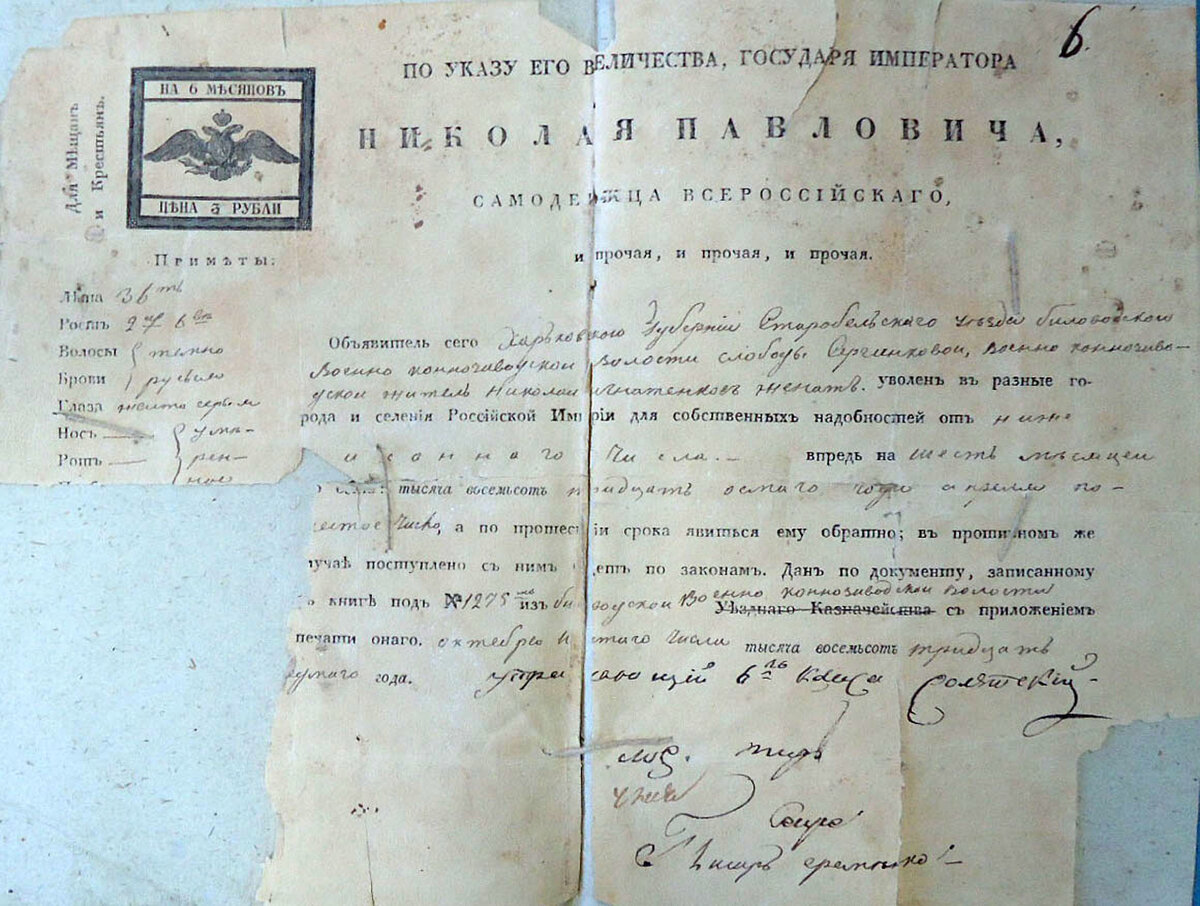 6.
ПО УКАЗУ ЕГО ВЕЛИЧЕСТВА, ГОСУДАРЯ ИМПЕРАТОРА
НИКОЛАЯ ПАВЛОВИЧА,
САМОДЕРЖЦА ВСЕРОССІЙСКАГО,
и прочая, и прочая, и прочая.
Для Мѣщанъ
и Крестьянъ.
НА 6 МѢСЯЦОВЪ
ЦѢНА 3 РУБЛИ
Примѣты:
Лѣта 36ть
Ростъ 2 6
Волосы темно
Брови русыя
Глаза желто серыя
Носъ умѣ-
Ротъ рен-
ное
Объявитель сего Харьковской Губерніи Старобельскаго уѣзда биловодской
Военно коннозаводской волости слободы военно коннозаво-
дской житель Николай Игнатенковъ женатъ. уволенъ въ разные го-
рода и селенія Россійской Имперіи для собственныхъ надобностей отъ ниже
исаннаго Числа. впредь на шесть мѣсяцей
тысяча восемьсотъ тридцать осмаго года апреля по-
естое Число, а по прошествіи срока явиться ему обратно; въ противномъ же
лучаѣ поступлено съ нимъ будетъ по законамъ. Данъ по документу, записанному
книгѣ подъ № 1275 изъ биловодской Военно коннозаводской волости
Уѣзднаго Казначейства съ приложеніемъ
печати онаго. октебря Числа тысяча восемьсотъ тридцать
года. 6го Класа
Писарь